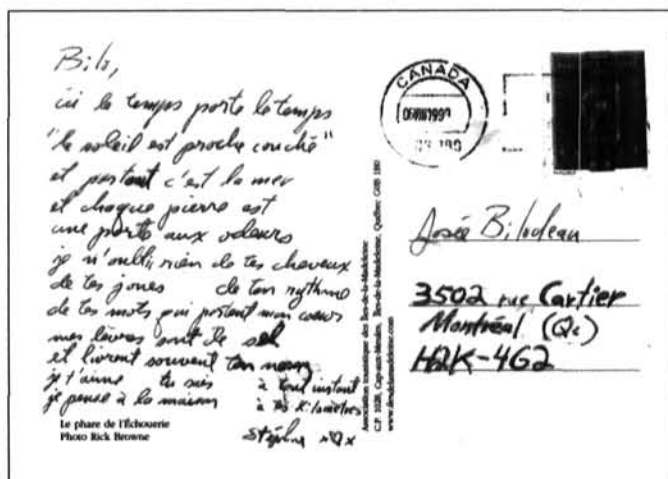 Bilo,
ici le temps porte le temps
"le soleil est proche couché"
et partout c'est la mer
et chaque pierre est
une porte aux odeurs
je n'oublie rien de tes cheveux
de tes joues de ton rythme
de tes mots qui portent mon coeur
mes lèvres ont le sel
et livrent souvent ton nom
je t'aime tu sais à tout instant
je pense à la maison à tes kilomètres
Stéphne x♡x
Le phare de l'Échouerie
Photo Rick Browne
Association touristique des Îles-de-la-Madeleine
C.P. 1028, Cap-aux-Meules, Îles-de-la-Madeleine, Québec G0B 1B0
www.ilesdelamadeleine.com
CANADA
Josée Bilodeau
3502 rue Cartier
Montréal (Qc)
H2K-4G2